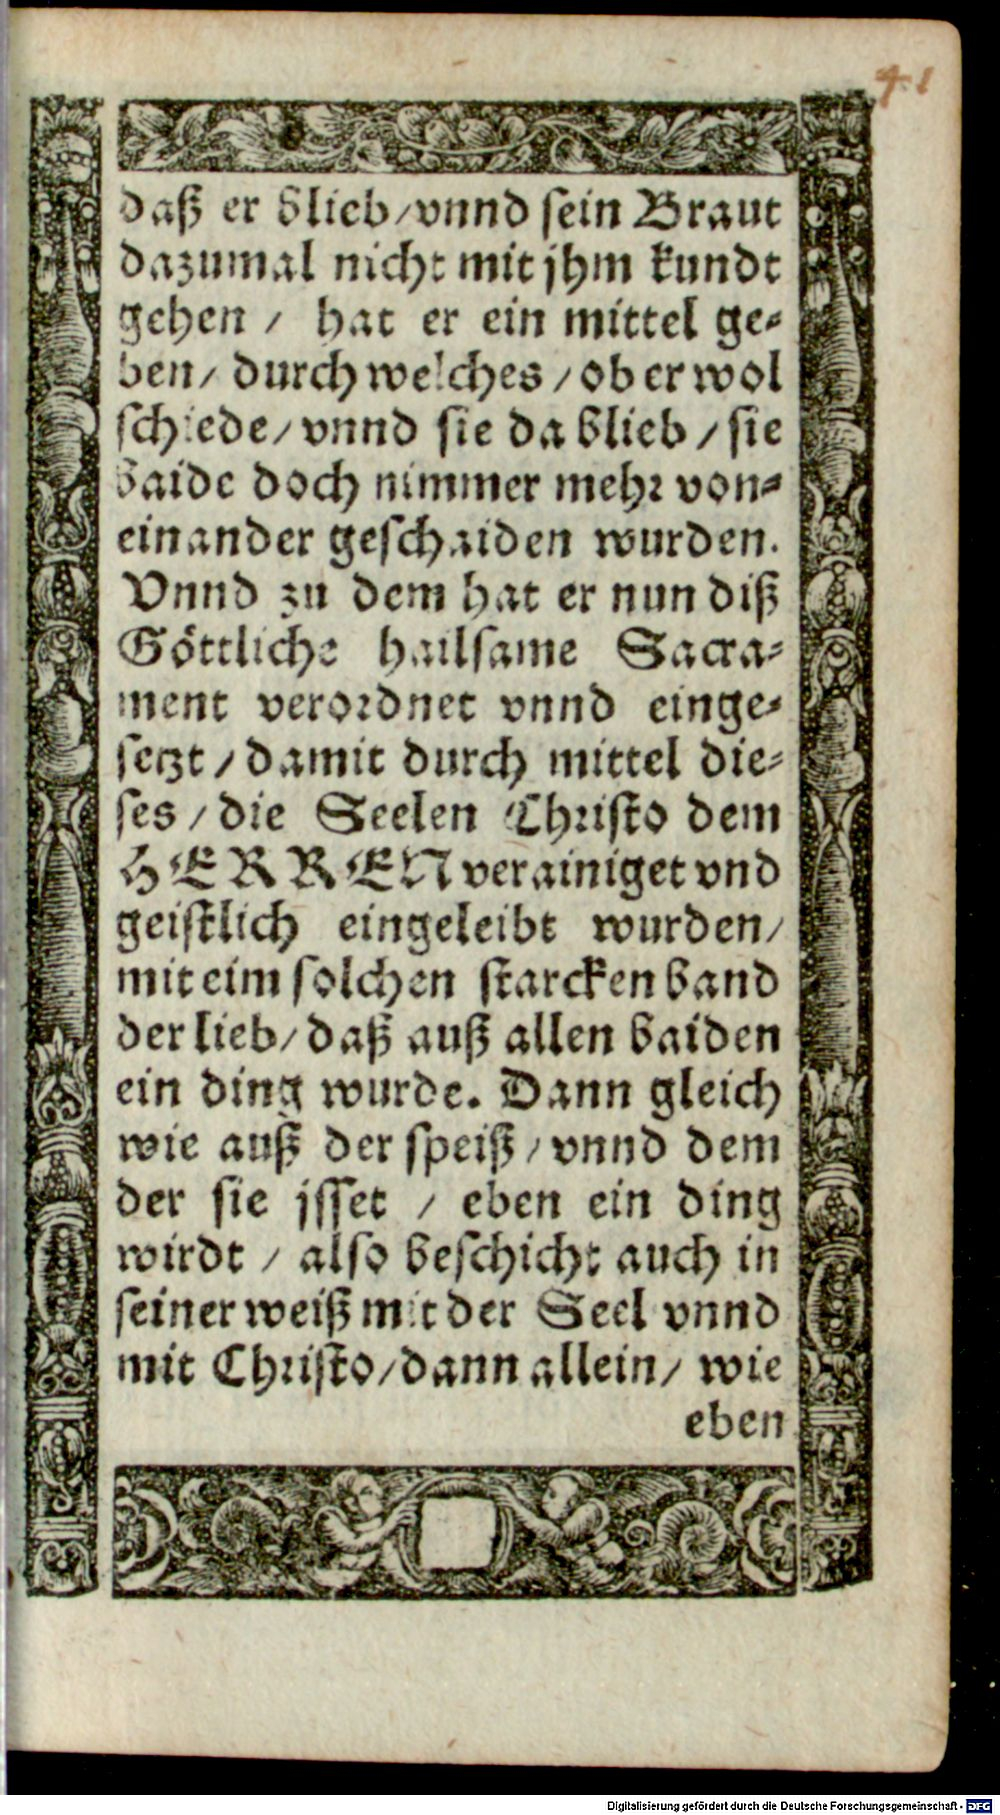 41
daß er blieb/vnnd sein Braut
dazumal nicht mit jhm kundt
gehen / hat er ein mittel ge-
ben/ durch welches / ob er wol
schiede/ vnnd sie da blieb / sie
baide doch nimmer mehr von-
einander geschaiden wurden.
Vnnd zu dem hat er nun diß
Göttliche hailsame Sacra-
ment verordnet vnnd einge-
setzt / damit durch mittel die-
ses / die Seelen Christo dem
HERREN verainiget vnd
geistlich eingeleibt wurden/
mit eim solchen starcken band
der lieb/ daß auß allen baiden
ein ding wurde. Dann gleich
wie auß der speiß / vnnd dem
der sie jsset / eben ein ding
wirdt / also beschicht auch in
seiner weiß mit der Seel vnnd
mit Christo/dann allein/ wie
eben
Digitalisierung gefördert durch die Deutsche Forschungsgemeinschaft - DFG